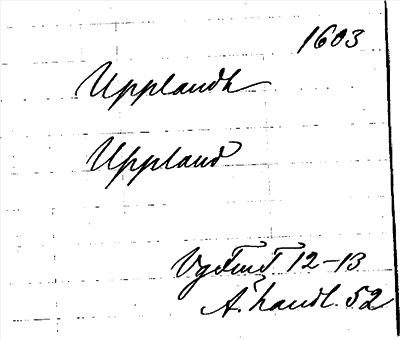 1603
Upplandh
Uppland
12-13
Å. handl. 52